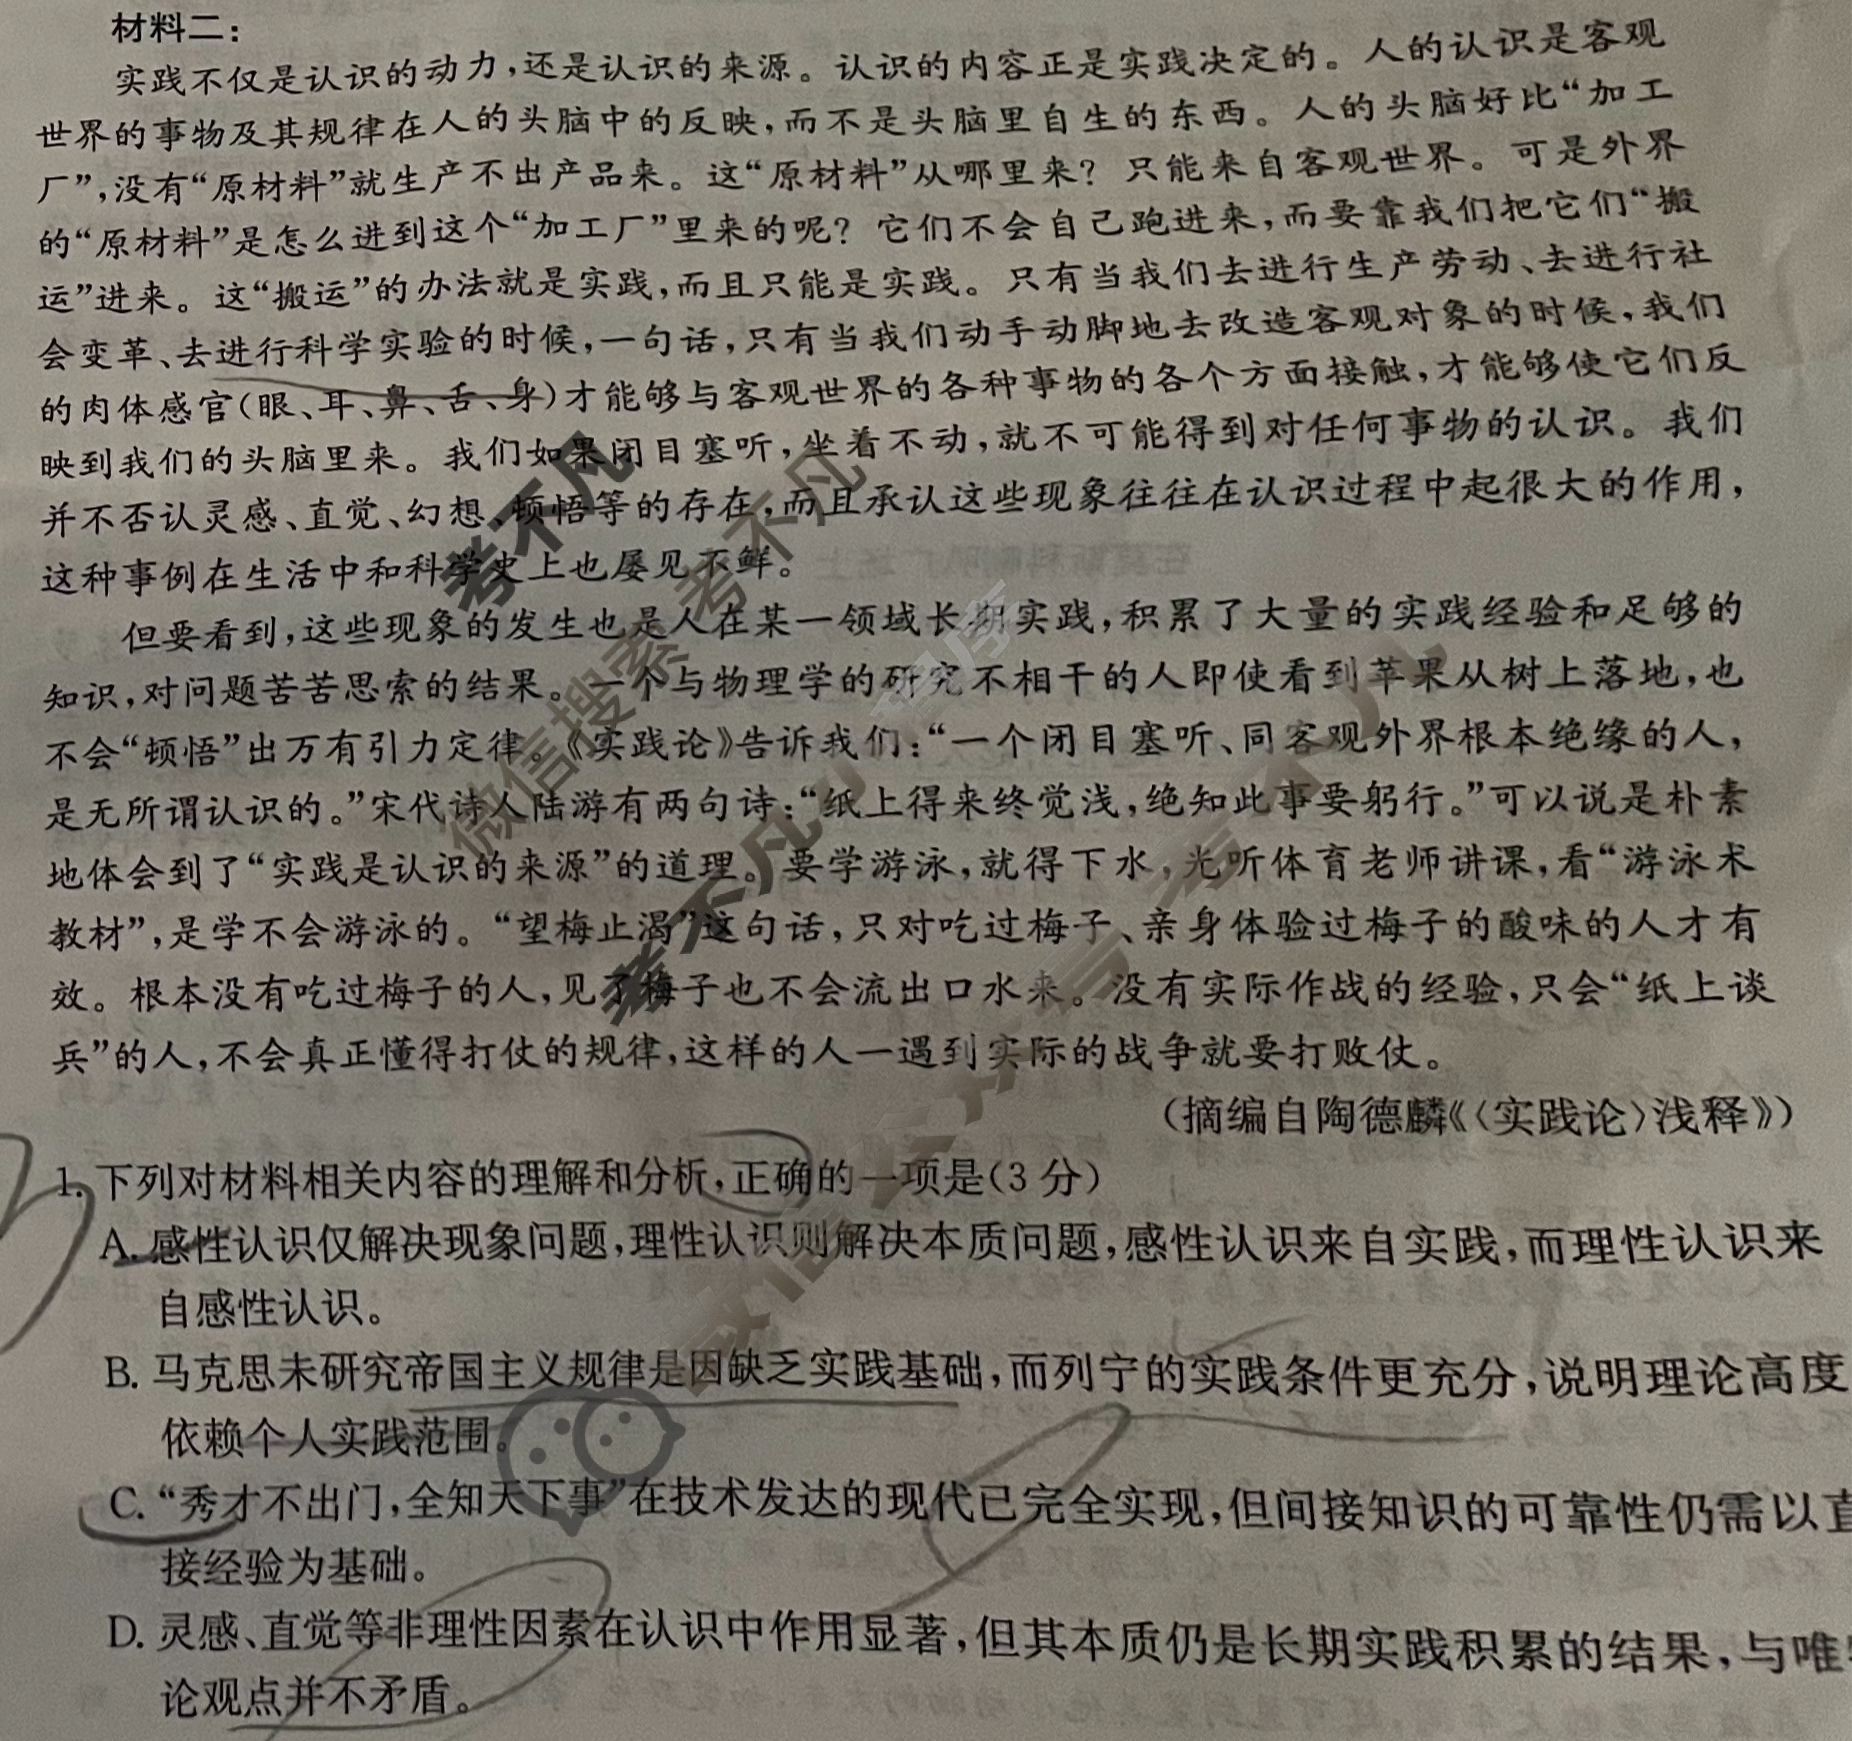 材料二：
实践不仅是认识的动力，还是认识的来源。认识的内容正是实践决定的。人的认识是客观
世界的事物及其规律在人的头脑中的反映，而不是头脑里自生的东西。人的头脑好比“加工
厂”，没有“原材料”就生产不出产品来。这“原材料”从哪里来？只能来自客观世界。可是外界
的“原材料”是怎么进到这个“加工厂”里来的呢？它们不会自己跑进来，而要靠我们把它们“搬
运”进来。这“搬运”的办法就是实践，而且只能是实践。只有当我们去进行生产劳动、去进行社
会变革、去进行科学实验的时候，一句话，只有当我们动手动脚地去改造客观对象的时候，我们
的肉体感官（眼、耳、鼻、舌、身）才能够与客观世界的各种事物的各个方面接触，才能够使它们反
映到我们的头脑里来。我们如果闭目塞听，坐着不动，就不可能得到对任何事物的认识。我们
并不否认灵感、直觉、幻想、顿悟等的存在，而且承认这些现象往往在认识过程中起很大的作用，
这种事例在生活中和科学史上也屡见不鲜。
但要看到，这些现象的发生也是人在某一领域长期实践，积累了大量的实践经验和足够的
知识，对问题苦苦思索的结果。一个与物理学的研究不相干的人即使看到苹果从树上落地，也
不会“顿悟”出万有引力定律。《实践论》告诉我们：“一个闭目塞听、同客观外界根本绝缘的人，
是无所谓认识的。”宋代诗人陆游有两句诗：“纸上得来终觉浅，绝知此事要躬行。”可以说是朴素
地体会到了“实践是认识的来源”的道理。要学游泳，就得下水，光听体育老师讲课，看“游泳术
教材”，是学不会游泳的。“望梅止渴”这句话，只对吃过梅子、亲身体验过梅子的酸味的人才有
效。根本没有吃过梅子的人，见了梅子也不会流出口水来。没有实际作战的经验，只会“纸上谈
兵”的人，不会真正懂得打仗的规律，这样的人一遇到实际的战争就要打败仗。
（摘编自陶德麟《〈实践论〉浅释》）
1. 下列对材料相关内容的理解和分析，正确的一项是（3分）
A. 感性认识仅解决现象问题，理性认识则解决本质问题，感性认识来自实践，而理性认识来
自感性认识。
B. 马克思未研究帝国主义规律是因缺乏实践基础，而列宁的实践条件更充分，说明理论高度
依赖个人实践范围。
C. “秀才不出门，全知天下事”在技术发达的现代已完全实现，但间接知识的可靠性仍需以直
接经验为基础。
D. 灵感、直觉等非理性因素在认识中作用显著，但其本质仍是长期实践积累的结果，与唯
论观点并不矛盾。
考不凡
微信搜索 考不凡